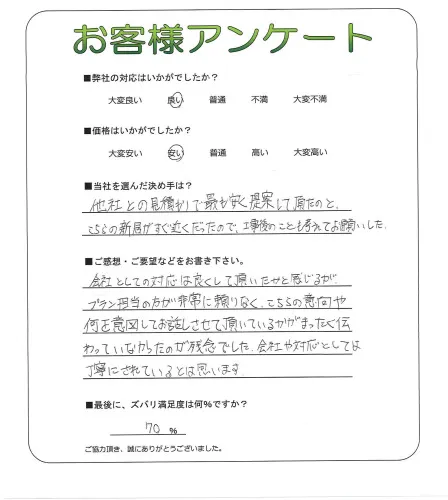 お客様アンケート
■弊社の対応はいかがでしたか？
大変良い 良い 普通 不満 大変不満
■価格はいかがでしたか？
大変安い 安い 普通 高い 大変高い
■当社を選んだ決め手は？
他社との見積わりで最も安く提案して頂たのと、
こちらの新居がすぐ近くだったので、工事後のことも考えてお願いした。
■ご感想・ご要望などをお書き下さい。
会社としての対応は良くして頂いたかと感じるが、
プラン担当の方が非常に頼りなく、こちらの意向や
何を意図してお話しさせて頂いているかがまったく伝
わっていなかったのが残念でした。会社や対応としては
丁寧にされているとは思います。
■最後に、ズバリ満足度は何%ですか？
70 %
ご協力頂き、誠にありがとうございました。